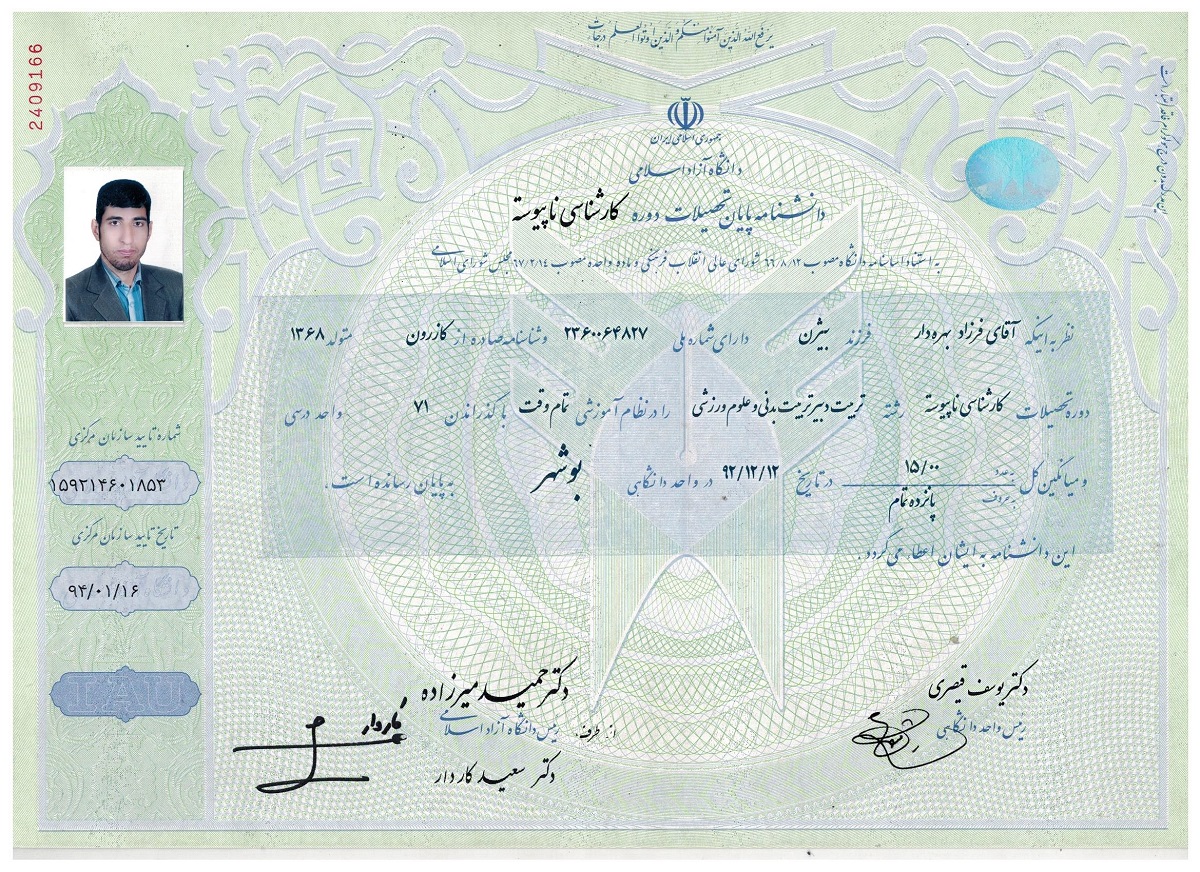 یرفع الله الذین آمنوا منکم والذین اوتوا العلم درجات
2409166
جمهوری اسلامی ایران
دانشگاه آزاد اسلامی
دانشنامه پایان تحصیلات دوره کارشناسی ناپیوسته
به استناد اساسنامه دانشگاه مصوب ۶۶/۸/۱۲ شورای عالی انقلاب فرهنگی و ماده واحده مصوب ۶۷/۲/۱۴ مجلس شورای اسلامی
نظر به اینکه آقای فرزاد بهره دار فرزند بیژن دارای شماره ملی ۲۳۶۰۰۶۴۸۲۷ و شناسنامه صادره از کازرون متولد ۱۳۶۸
دوره تحصیلات کارشناسی ناپیوسته رشته تربیت دبیر تربیت بدنی و علوم ورزشی را در نظام آموزشی تمام وقت با گذراندن ۷۱ واحد درسی
و میانگین کل به عدد ۱۵/۰۰ به حروف پانزده تمام در تاریخ ۹۲/۱۲/۱۲ در واحد دانشگاهی بوشهر به پایان رسانده است.
این دانشنامه به ایشان اعطا می گردد.
شماره تایید سازمان مرکزی
۱۵۹۲۱۴۶۰۱۸۵۳
تاریخ تایید سازمان مرکزی
۹۴/۰۱/۱۶
IAU
دکتر یوسف قیصری
رییس واحد دانشگاهی
دکتر حمید میرزاده
رییس دانشگاه آزاد اسلامی
از طرف
دکتر سعید کاردار
کاردار